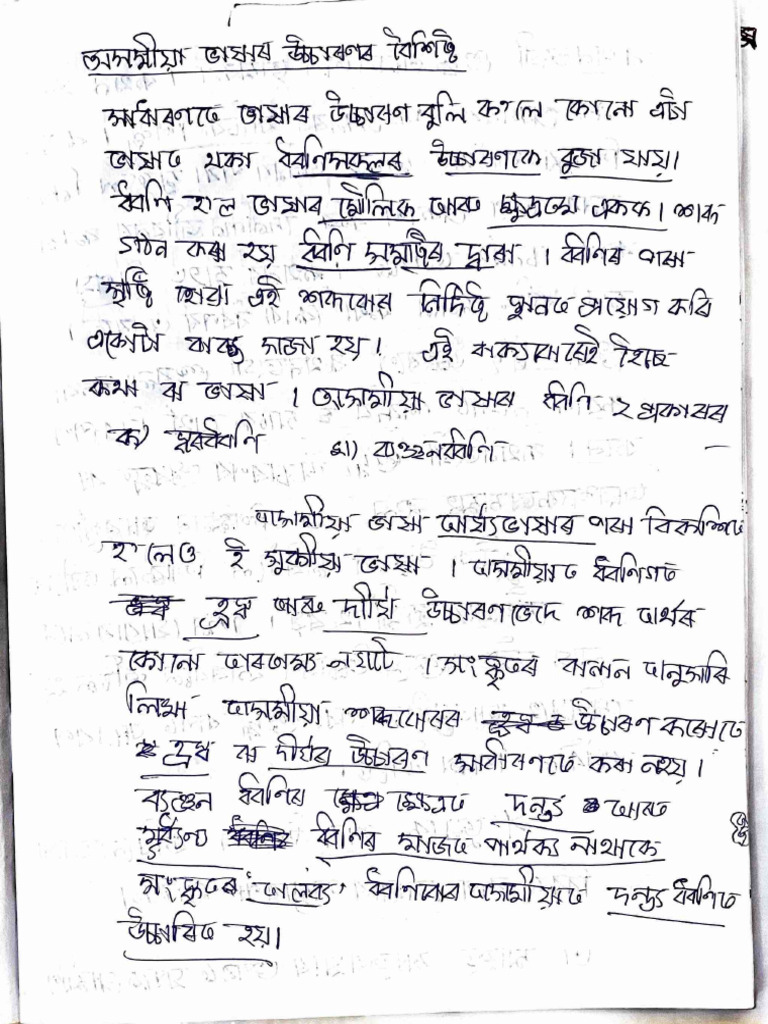 অসমীয়া ভাষাৰ উচ্চাৰণৰ বৈশিষ্ট্য
সাধাৰণতে ভাষাৰ উচ্চাৰণ বুলি ক'লে কোনো এটা
ভাষাত থকা ধ্বনিসকলৰ উচ্চাৰণকে বুজা যায়।
ধ্বনি হ'ল ভাষাৰ মৌলিক আৰু ক্ষুদ্ৰতম একক। শব্দ
গঠন কৰা হয় ধ্বনি সমষ্টিৰ দ্বাৰা। ধ্বনিৰ পৰা
সৃষ্টি হোৱা এই শব্দবোৰ নিৰ্দিষ্ট স্থানত প্ৰয়োগ কৰি
একোটা বাক্য সজা হয়। এই বাক্যবোৰেই হৈছে
কথা বা ভাষা। অসমীয়া ভাষাৰ ধ্বনি ২ প্ৰকাৰৰ
ক) স্বৰধ্বনি খ) ব্যঞ্জনধ্বনি
অসমীয়া ভাষা আৰ্য্যভাষাৰ পৰা বিকশিত
হ'লেও ই সুকীয়া ভাষা। অসমীয়াত ধ্বনিগত
হ্ৰস্ব আৰু দীৰ্ঘ উচ্চাৰণভেদে শব্দ অৰ্থৰ
কোনো তাৰতম্য নঘটে। সংস্কৃতৰ বানান অনুসৰি
লিখা অসমীয়া শব্দবোৰৰ উচ্চাৰণ কৰোতে
হ্ৰস্ব বা দীৰ্ঘৰ উচ্চাৰণ সাধাৰণতে কৰা নহয়।
ব্যঞ্জন ধ্বনিৰ ক্ষেত্ৰত দন্ত্য আৰু
মূৰ্ধন্য ধ্বনিৰ মাজত পাৰ্থক্য নাথাকে
সংস্কৃতৰ 'তালব্য' ধ্বনিবোৰ অসমীয়াত দন্ত্য ধ্বনিত
উচ্চাৰিত হয়।